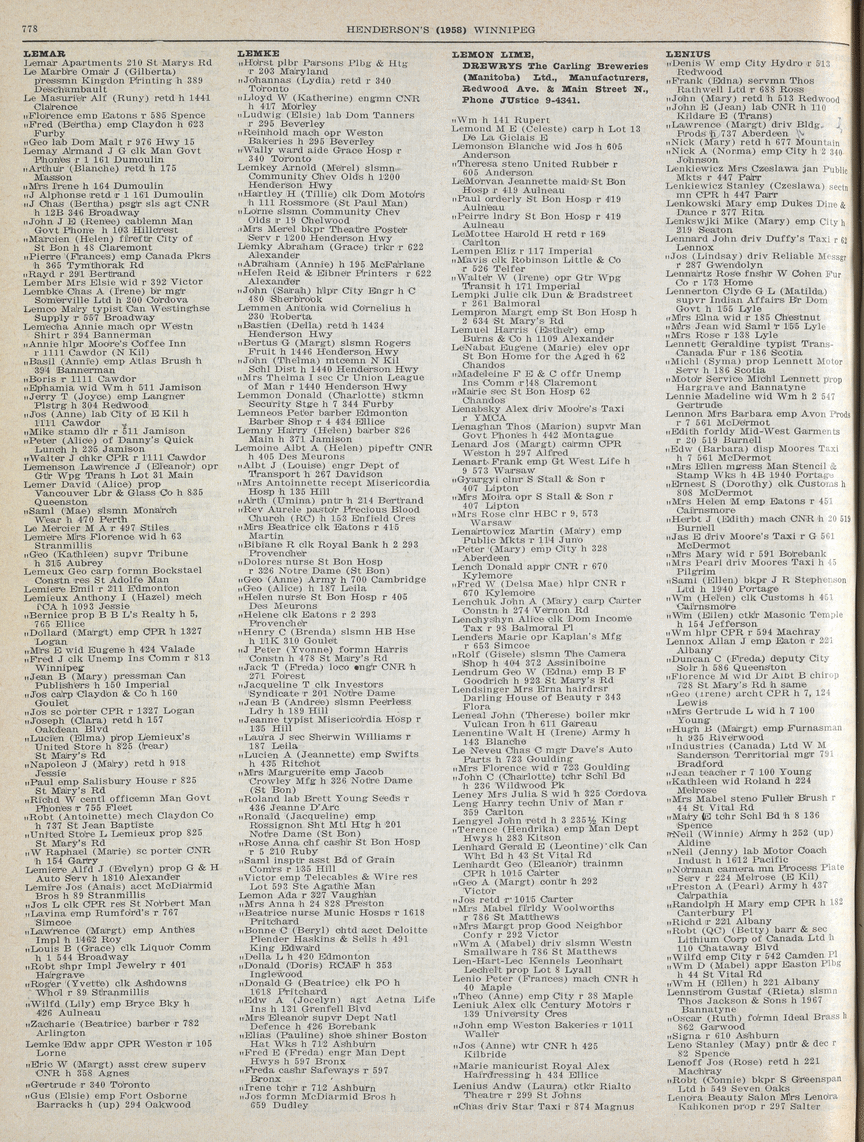 778
HENDERSON'S (1958) WINNIPEG
LEMAR
Lemar Apartments 210 St Marys Rd
Le Marbre Omar J (Gilberta)
pressmn Kingdon Printing h 389
Deschambault
Le Masurier Alf (Runy) retd h 1441
Clarence
„Florence emp Eatons r 585 Spence
„Fred (Bertha) emp Claydon h 623
Furby
„Geo lab Dom Malt r 976 Hwy 15
Lemay Armand J G clk Man Govt
Phones r 1 161 Dumoulin
„Arthur (Blanche) retd h 175
Masson
„Mrs Irene h 164 Dumoulin
„J Alphonse retd r 1 161 Dumoulin
„J Chas (Bertha) psgr sls agt CNR
h 12B 346 Broadway
„John J E (Renee) cablemn Man
Govt Phone h 103 Hillcrest
„Marcien (Helen) fireftr City of
St Bon h 48 Claremont
„Pierre (Frances) emp Canada Pkrs
h 365 Tymthorak Rd
„Rayd r 291 Bertrand
Lember Mrs Elsie wid r 392 Victor
Lembke Chas A (Irene) br mgr
Somerville Ltd h 200 Cordova
Lemco Mary typist Can Westinghse
Supply r 557 Broadway
Lemecha Annie mach opr Westn
Shirt r 394 Bannerman
„Annie hlpr Moore's Coffee Inn
r 1111 Cawdor (N Kil)
„Basil (Annie) emp Atlas Brush h
394 Bannerman
„Boris r 1111 Cawdor
„Ephamia wid Wm h 511 Jamison
„Jerry T (Joyce) emp Langner
Plstrg h 304 Redwood
„Jos (Anne) lab City of E Kil h
1111 Cawdor
„Mike stamo dir r 511 Jamison
„Peter (Alice) of Danny's Quick
Lunch h 235 Jamison
„Walter J chkr CPR r 1111 Cawdor
Lemenson Lawrence J (Eleanor) opr
Gtr Wpg Trans h Lot 31 Main
Lemer David (Alice) prop
Vancouver Lbr & Glass Co h 835
Queenston
„Saml (Mae) slsmn Monarch
Wear h 470 Perth
Le Mercier M A r 497 Stiles
Lemere Mrs Florence wid h 63
Stranmillis
„Geo (Kathleen) supvr Tribune
h 315 Aubrey
Lemeux Geo carp formn Bockstael
Constn res St Adolfe Man
Lemiere Emil r 211 Edmonton
Lemieux Anthony I (Hazel) mech
TCA h 1093 Jessie
„Bernice prop B B L's Realty h 5,
765 Ellice
„Dollard (Margt) emp CPR h 1327
Logan
„Mrs E wid Eugene h 424 Valade
„Fred J clk Unemp Ins Comm r 813
Winnipeg
„Jean B (Mary) pressman Can
Publishers h 150 Imperial
„Jos carp Claydon & Co h 160
Goulet
„Jos sc porter CPR r 1327 Logan
„Joseph (Clara) retd h 157
Oakdean Blvd
„Lucien (Elma) prop Lemieux's
United Store h 825 (rear)
St Mary's Rd
„Napoleon J (Mary) retd h 918
Jessie
„Paul emp Salisbury House r 825
St Mary's Rd
„Richd W centl officemn Man Govt
Phones r 755 Fleet
„Robt (Antoinette) mech Claydon Co
h 737 St Jean Baptiste
„United Store L Lemieux prop 825
St Mary's Rd
„W Raphael (Marie) sc porter CNR
h 154 Garry
Lemiere Alfd J (Evelyn) prop G & H
Auto Serv h 1810 Alexander
Lemire Jos (Anais) acct McDiarmid
Bros h 89 Stranmillis
„Jos L clk CPR res St Norbert Man
„Lavina emp Rumford's r 767
Simcoe
„Lawrence (Margt) emp Anthes
Impl h 1462 Roy
„Louis B (Grace) clk Liquor Comm
h 1 544 Broadway
„Robt shpr Impl Jewelry r 401
Hargrave
„Roger (Yvette) clk Ashdowns
Whol r 89 Stranmillis
„Wilfd (Lily) emp Bryce Bky h
426 Aulneau
„Zacharie (Beatrice) barber r 782
Arlington
Lemke Edw appr CPR Weston r 105
Lorne
„Eric W (Margt) asst crew superv
CNR h 358 Agnes
„Gertrude r 340 Toronto
„Gus (Elsie) emp Fort Osborne
Barracks h (up) 294 Oakwood
LEMKE
„Horst plbr Parsons Plbg & Htg
r 203 Maryland
„Johannas (Lydia) retd r 340
Toronto
„Lloyd W (Katherine) engmn CNR
h 417 Morley
„Ludwig (Elsie) lab Dom Tanners
r 295 Beverley
„Reinhold mach opr Weston
Bakeries h 295 Beverley
„Wally ward aide Grace Hosp r
340 Toronto
Lemkey Arnold (Merel) slsmn
Community Chev Olds h 1200
Henderson Hwy
„Hartley H (Tillie) clk Dom Motors
h 111 Rossmore (St Paul Man)
„Lorne slsmn Community Chev
Olds r 19 Chelwood
„Mrs Merel bkpr Theatre Poster
Serv r 1200 Henderson Hwy
Lemky Abraham (Grace) trkr r 622
Alexander
„Abraham (Annie) h 195 McFarlane
„Helen Reid & Eibner Printers r 622
Alexander
„John (Sarah) hlpr City Engr h C
480 Sherbrook
Lemmen Antonia wid Cornelius h
230 Roberta
„Bastien (Della) retd h 1434
Henderson Hwy
„Bertus G (Margt) slsmn Rogers
Fruit h 1446 Henderson Hwy
„John (Thelma) mtcemn N Kil
Schl Dist h 1440 Henderson Hwy
„Mrs Thelma I sec Cr Union League
of Man r 1440 Henderson Hwy
Lemmon Donald (Charlotte) stkmn
Security Stge h 7 344 Furby
Lemneos Peter barber Edmonton
Barber Shop r 4 434 Ellice
Lemny Harry (Helen) barber 826
Main h 371 Jamison
Lemoine Albt A (Helen) pipeftr CNR
h 405 Des Meurons
„Albt J (Louise) engr Dept of
Transport h 267 Davidson
„Mrs Antoinnette recept Misericordia
Hosp h 135 Hill
„Arth (Umina) pntr h 214 Bertrand
„Rev Aurele pastor Precious Blood
Church (RC) h 153 Enfield Cres
„Mrs Beatrice clk Eatons r 415
Martin
„Bibiane R clk Royal Bank h 2 293
Provencher
„Dolores nurse St Bon Hosp
r 326 Notre Dame (St Bon)
„Geo (Anne) Army h 700 Cambridge
„Geo (Alice) h 187 Leila
„Helen nurse St Bon Hosp r 405
Des Meurons
„Helene clk Eatons r 2 293
Provencher
„Henry C (Brenda) slsmn HB Hse
h 11K 310 Goulet
„J Peter (Yvonne) formn Harris
Constn h 478 St Mary's Rd
„Jack T (Freda) loco engr CNR h
271 Forest
„Jacqueline T clk Investors
Syndicate r 201 Notre Dame
„Jean B (Andree) slsmn Peerless
Ldry h 189 Hill
„Jeanne typist Misericordia Hosp r
135 Hill
„Laura J sec Sherwin Williams r
187 Leila
„Lucien A (Jeannette) emp Swifts
h 435 Ritchot
„Mrs Marguerite emp Jacob
Crowley Mfg h 326 Notre Dame
(St Bon)
„Roland lab Brett Young Seeds r
436 Jeanne D'Arc
„Ronald (Jacqueline) emp
Rossignon Sht Mtl Htg h 201
Notre Dame (St Bon)
„Rose Anna chf cashr St Bon Hosp
r 5 210 Ruby
„Saml insptr asst Bd of Grain
Comrs r 135 Hill
„Victor emp Telecables & Wire res
Lot 593 Ste Agathe Man
Lemon Ada r 327 Vaughan
„Mrs Anna h 24 828 Preston
„Beatrice nurse Munic Hosps r 1618
Pritchard
„Bonne C (Beryl) chtd acct Deloitte
Plender Haskins & Sells h 491
King Edward
„Della L h 420 Edmonton
„Donald (Doris) RCAF h 353
Inglewood
„Donald G (Beatrice) clk PO h
1618 Pritchard
„Edw A (Jocelyn) agt Aetna Life
Ins h 131 Grenfell Blvd
„Mrs Eleanor supvr Dept Natl
Defence h 426 Borebank
„Elias (Pauline) shoe shiner Boston
Hat Wks h 712 Ashburn
„Fred E (Freda) engr Man Dept
Hwys h 597 Bronx
„Freda cashr Safeways r 597
Bronx
„Irene tchr r 712 Ashburn
„Jos formn McDiarmid Bros h
659 Dudley
LEMON LIME,
DREWRYS The Carling Breweries
(Manitoba) Ltd., Manufacturers,
Redwood Ave. & Main Street N.,
Phone JUstice 9-4341.
„Wm h 141 Rupert
Lemond M E (Celeste) carp h Lot 13
De La Giclais E
Lemonson Blanche wid Jos h 605
Anderson
„Theresa steno United Rubber r
605 Anderson
LeMorvan Jeannette maid St Bon
Hosp r 419 Aulneau
„Paul orderly St Bon Hosp r 419
Aulneau
„Peirre lndry St Bon Hosp r 419
Aulneau
LeMottee Harold H retd r 169
Carlton
Lempen Eliz r 117 Imperial
„Mavis clk Robinson Little & Co
r 526 Telfer
„Walter W (Irene) opr Gtr Wpg
Transit h 171 Imperial
Lempki Julie clk Dun & Bradstreet
r 261 Balmoral
Lempiron Margt emp St Bon Hosp h
2 634 St Mary's Rd
Lemuel Harris (Esther) emp
Burns & Co h 1109 Alexander
LeNabat Eugene (Marie) elev opr
St Bon Home for the Aged h 62
Chandos
„Madeleine F E & C offr Unemp
Ins Comm r 48 Claremont
„Marie sec St Bon Hosp 62
Chandos
Lenabsky Alex driv Moore's Taxi
r YMCA
Lenaghan Thos (Marion) supvr Man
Govt Phones h 442 Montague
Lenard Jos (Margt) carmn CPR
Weston h 297 Alfred
Lenart Frank emp Gt West Life h
9 573 Warsaw
„Gyargyi clnr S Stall & Son r
407 Lipton
„Mrs Moira opr S Stall & Son r
407 Lipton
„Mrs Rose clnr HBC r 9, 573
Warsaw
Lenartowicz Martin (Mary) emp
Public Mkts r 114 Juno
„Peter (Mary) emp City h 328
Aberdeen
Lench Donald appr CNR r 670
Kylemore
„Fred W (Delsa Mae) hlpr CNR r
670 Kylemore
Lenchuk John A (Mary) carp Carter
Constn h 274 Vernon Rd
Lenchyshyn Alice clk Dom Income
Tax r 98 Balmoral Pl
Lenders Marie opr Kaplan's Mfg
r 653 Simcoe
„Rolf (Gisele) slsmn The Camera
Shop h 404 372 Assiniboine
Lendrum Geo W (Edna) emp B F
Goodrich h 923 St Mary's Rd
Lendsinger Mrs Erna hairdrsr
Darling House of Beauty r 343
Flora
Leneal John (Therese) boiler mkr
Vulcan Iron h 611 Gareau
Lenentine Walt H (Irene) Army h
143 Blanche
Le Neveu Chas C mgr Dave's Auto
Parts h 723 Goulding
„Mrs Florence wid r 723 Goulding
„John C (Charlotte) tchr Schl Bd
h 236 Wildwood Pk
Leney Mrs Julia S wid h 325 Cordova
Leng Harry techn Univ of Man r
359 Carlton
Lengyel John retd h 3 235½ King
„Terence (Hendrika) emp Man Dept
Hwys h 283 Kitson
Lenhard Gerald E (Leontine) clk Can
Wht Bd h 43 St Vital Rd
Lenhardt Geo (Eleanor) trainmn
CPR h 1015 Carter
„Geo A (Margt) contr h 292
Victor
„Jos retd r 1015 Carter
„Mrs Mabel firldy Woolworths
r 786 St Matthews
„Mrs Margt prop Good Neighbor
Confy r 292 Victor
„Wm A (Mabel) driv slsmn Westn
Smallware h 786 St Matthews
Len-Hart-Lec Kennels Leonhart
Lechelt prop Lot 8 Lyall
Lenio Peter (Frances) mach CNR h
40 Maple
„Theo (Anne) emp City r 38 Maple
Leniuk Alex clk Century Motors r
139 University Cres
„John emp Weston Bakeries r 1011
Waller
„Jos (Anne) wtr CNR h 425
Kilbride
„Marie manicurist Royal Alex
Hairdressing h 434 Ellice
Lenius Andw (Laura) ctkr Rialto
Theatre r 299 St Johns
„Chas driv Star Taxi r 874 Magnus
LENIUS
„Denis W emp City Hydro r 513
Redwood
„Frank (Edna) servmn Thos
Rathwell Ltd r 688 Ross
„John (Mary) retd h 513 Redwood
„John E (Jean) lab CNR h 110
Kildare E (Trans)
„Lawrence (Margt) driv Bldg
Prods h 737 Aberdeen
„Nick (Mary) retd h 677 Mountain
„Nick A (Norma) emp City h 2 340
Johnson
Lenkiewicz Mrs Czeslawa jan Public
Mkts r 447 Parr
Lenkiewicz Stanley (Czeslawa) sectn
mn CPR h 447 Parr
Lenkowski Mary emp Dukes Dine &
Dance r 377 Rita
Lenkswjki Mike (Mary) emp City h
219 Seaton
Lennard John driv Duffy's Taxi r 62
Lennox
„Jos (Lindsay) driv Reliable Messgr
r 287 Gwendolyn
Lennartz Rose fnshr W Cohen Fur
Co r 173 Home
Lennerton Clyde G L (Matilda)
supvr Indian Affairs Br Dom
Govt h 155 Lyle
„Mrs Elna wid r 185 Chestnut
„Mrs Jean wid Saml r 155 Lyle
„Mrs Rose r 138 Lyle
Lennett Geraldine typist Trans-
Canada Fur r 186 Scotia
„Michl (Syma) prop Lennett Motor
Serv h 186 Scotia
„Motor Service Michl Lennett prop
Hargrave and Bannatyne
Lennie Madeline wid Wm h 2 547
Gertrude
Lennon Mrs Barbara emp Avon Prods
r 7 561 McDermot
„Edith forldy Mid-West Garments
r 20 519 Burnell
„Edw (Barbara) disp Moores Taxi
h 7 561 McDermot
„Mrs Ellen mgress Man Stencil &
Stamp Wks h 4B 1940 Portage
„Ernest S (Dorothy) clk Customs h
808 McDermot
„Mrs Helen M emp Eatons r 451
Cairnsmore
„Herbt J (Edith) mach CNR h 20 519
Burnell
„Jas E driv Moore's Taxi r G 561
McDermot
„Mrs Mary wid r 591 Borebank
„Mrs Pearl driv Moores Taxi h 45
Pilgrim
„Saml (Ellen) bkpr J R Stephenson
Ltd h 1940 Portage
„Wm (Helen) clk Customs h 451
Cairnsmore
„Wm (Ellen) ctkr Masonic Temple
h 154 Jefferson
„Wm hlpr CPR r 594 Machray
Lennox Allan J emp Eaton r 221
Albany
„Duncan C (Freda) deputy City
Solr h 586 Queenston
„Florence M wid Dr Albt B chirop
728 St Mary's Rd h same
„Geo (Irene) archt CPR h 7, 124
Lewis
„Mrs Gertrude L wid h 7 100
Young
„Hugh B (Margt) emp Furnasman
h 935 Riverwood
„Industries (Canada) Ltd W M
Sanderson Territorial mgr 791
Bradford
„Jean teacher r 7 100 Young
„Kathleen wid Roland h 224
Melrose
„Mrs Mabel steno Fuller Brush r
44 St Vital Rd
„Mary E tchr Schl Bd h 8 136
Spence
„Neil (Winnie) Army h 252 (up)
Aldine
„Neil (Jenny) lab Motor Coach
Indust h 1612 Pacific
„Norman camera mn Process Plate
Serv r 224 Melrose (E Kil)
„Preston A (Pearl) Army h 437
Carpathia
„Randolph H Mary emp CPR h 182
Canterbury Pl
„Richd r 221 Albany
„Robt (QC) (Betty) barr & sec
Lithium Corp of Canada Ltd h
110 Chataway Blvd
„Wilfd emp City r 542 Camden Pl
„Wm D (Mabel) appr Easton Plbg
h 44 St Vital Rd
„Wm H (Ellen) h 221 Albany
Lennstrom Gustaf (Rieta) slsmn
Thos Jackson & Sons h 1967
Bannatyne
„Oscar (Ruth) formn Ideal Brass h
862 Garwood
„Signa r 610 Ashburn
Leno Stanley (May) pntr & dec r
82 Spence
Lenoff Jos (Rose) retd h 221
Machray
„Robt (Connie) bkpr S Greenspan
Ltd h 549 Seven Oaks
Lenora Beauty Salon Mrs Lenora
Kahkonen prop r 297 Salter